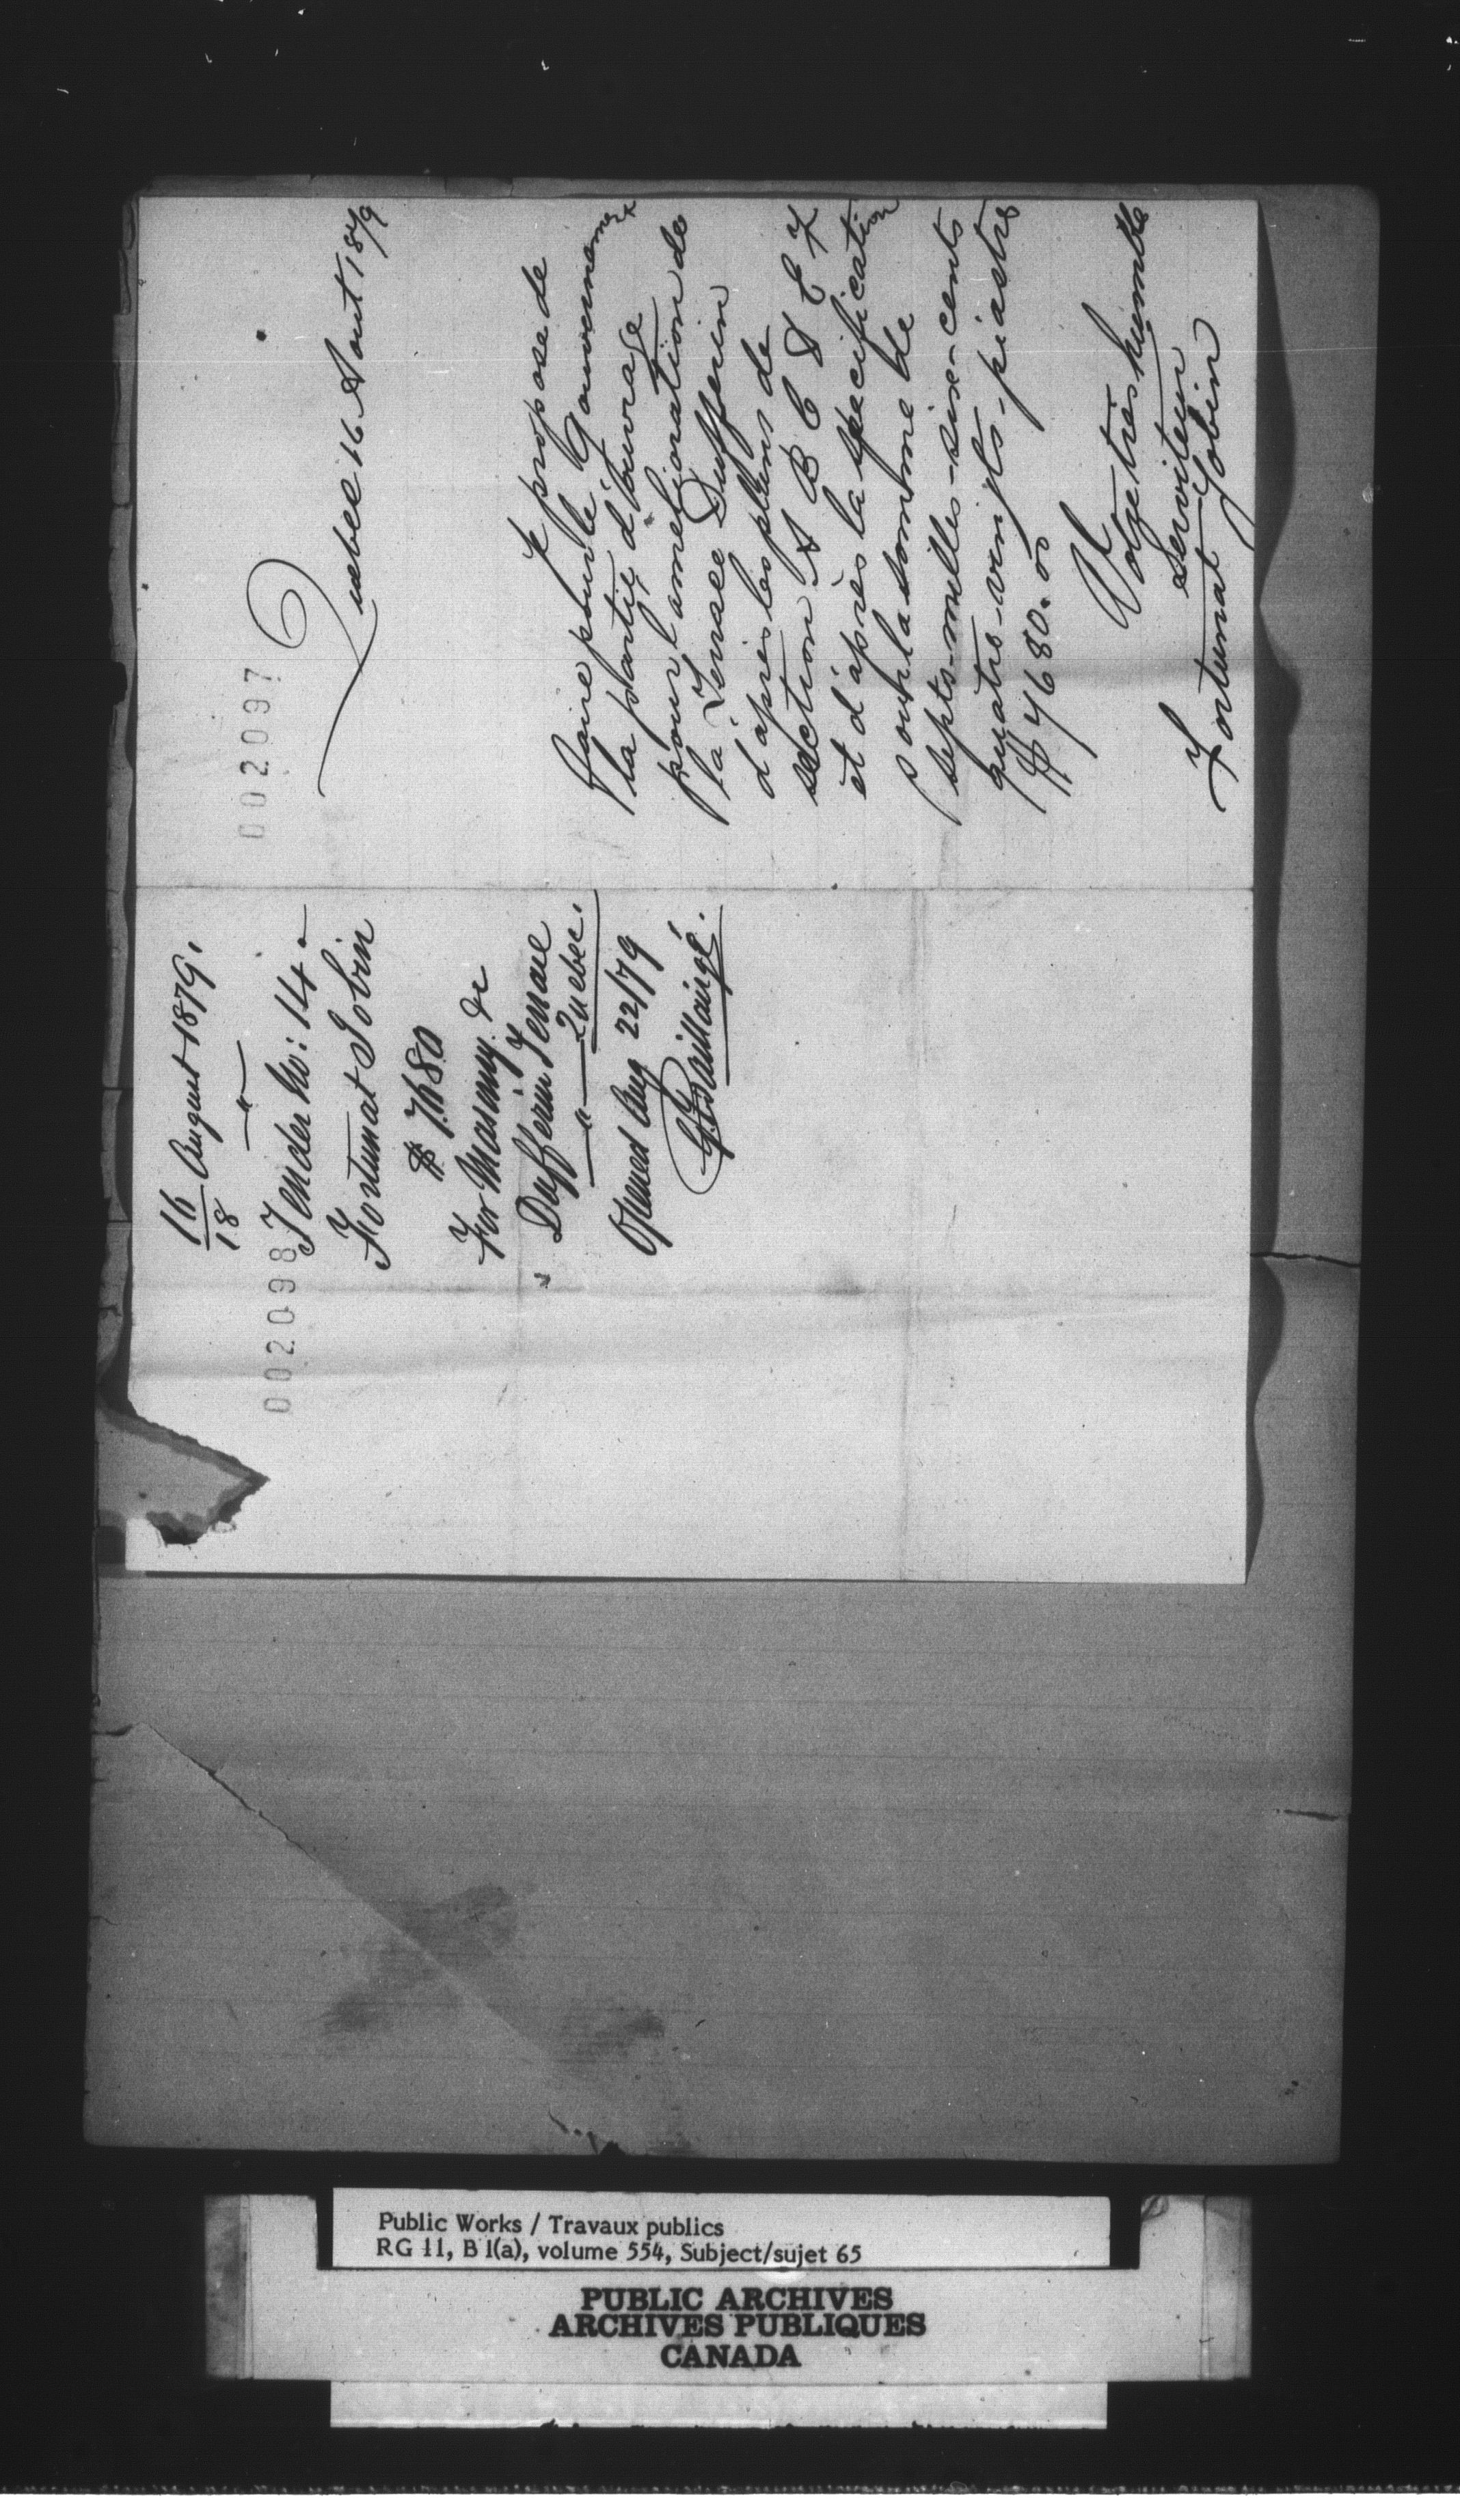 002097
Quebec 16 Aout 1879
Je propose de
faire pour le Gouvernement
la partie d'ouvrage
pour l'amelioration de
la Terrace Dufferin
d'apres les plans de
section A B C D E F
et d'après la specification
pour la somme de
septs-milles-sixe-cents
quatre-vingts-piastres
$7680.00
Votre très humble
Serviteur
Fortunat Jobin
16/18 August 1879.
—"—
002098
Tender No: 14.
Fortunat Jobin
$ 7.680
For Masonry &c
Dufferin Terrace
—"— Quebec.
Opened Aug 22/79
G.F. Baillairgé.
Public Works / Travaux publics
RG 11, B 1(a), volume 554, Subject/sujet 65
PUBLIC ARCHIVES
ARCHIVES PUBLIQUES
CANADA